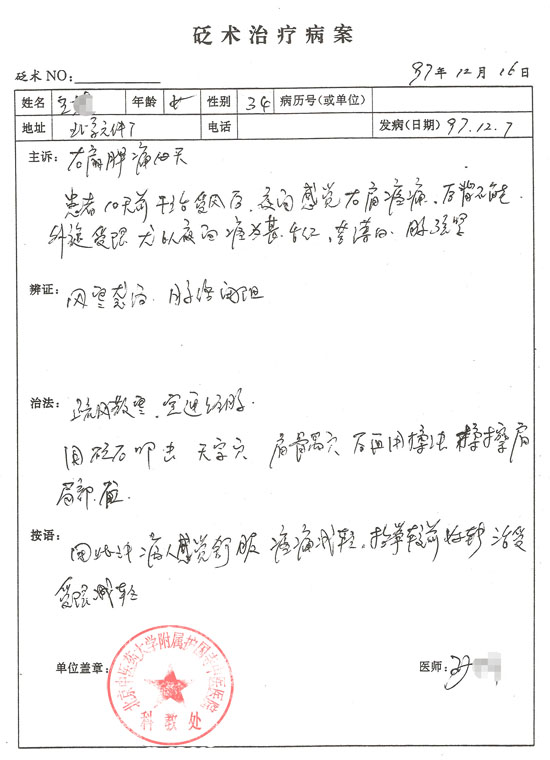 砭术治疗病案
砭术NO: 97年12月16日
姓名 王 年龄 女 性别 34 病历号(或单位)
地址 北京元件厂 电话 发病(日期) 97.12.7
主诉: 右肩胛痛10天
患者10天前 受风后,夜间感觉右肩疼痛,后背不能
外旋受限 尤以夜间疼为甚 舌红,苔薄白 脉弦紧
辨证: 风寒袭络 脉络闭阻
治法: 疏风散寒,宣通经脉
用砭石叩击 天宗穴 肩骨禺穴 后再用擦法 擦肩
局部
按语: 用此法 病人感觉舒服 疼痛减轻, 较前好转 活动
受限减轻
单位盖章: 医师:
北京中医药大学附属护国寺中医医院
科教处